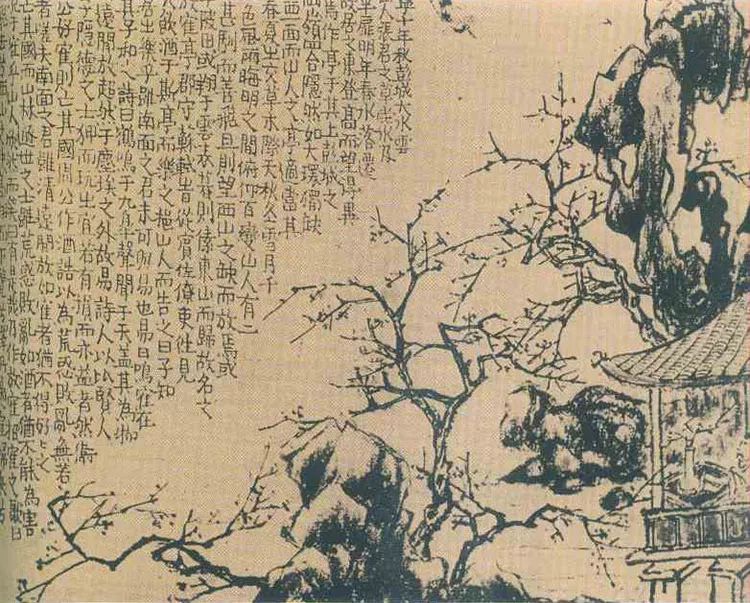 寧十年秋彭城大水雲
人張君之草堂水及
半扉明年春水落遷
故居之東登高而望得異
焉作亭于其上彭城之
山岡嶺四合隱然如大環獨缺
西一面而山人之亭適當其
春夏之交草木際天秋冬雪月千
色風雨晦明之間俯仰百變山人有二
甚馴而善飛旦則望西山之缺而放焉或
于陂田或翔于雲表暮則傃東山而歸故名之
放鶴亭郡守蘇軾昔從賓佐僚吏往見
人飲酒于斯亭而樂之挹山人而告之曰子知
居之樂乎雖南面之君未可與易也易曰鳴鶴在
其子和之詩曰鶴鳴于九皋聲聞于天蓋其為物
遠閒放超然于塵埃之外故易詩人以比賢人
子隱德之士狎而玩之宜若有損而亦益者然衛
公好鶴則亡其國周公作酒誥以為荒惑敗亂無若
者嗟夫南面之君雖清遠閒放如鶴者猶不得好之
亡其國而山林遯世之士雖荒惑敗亂如酒者猶不能為害